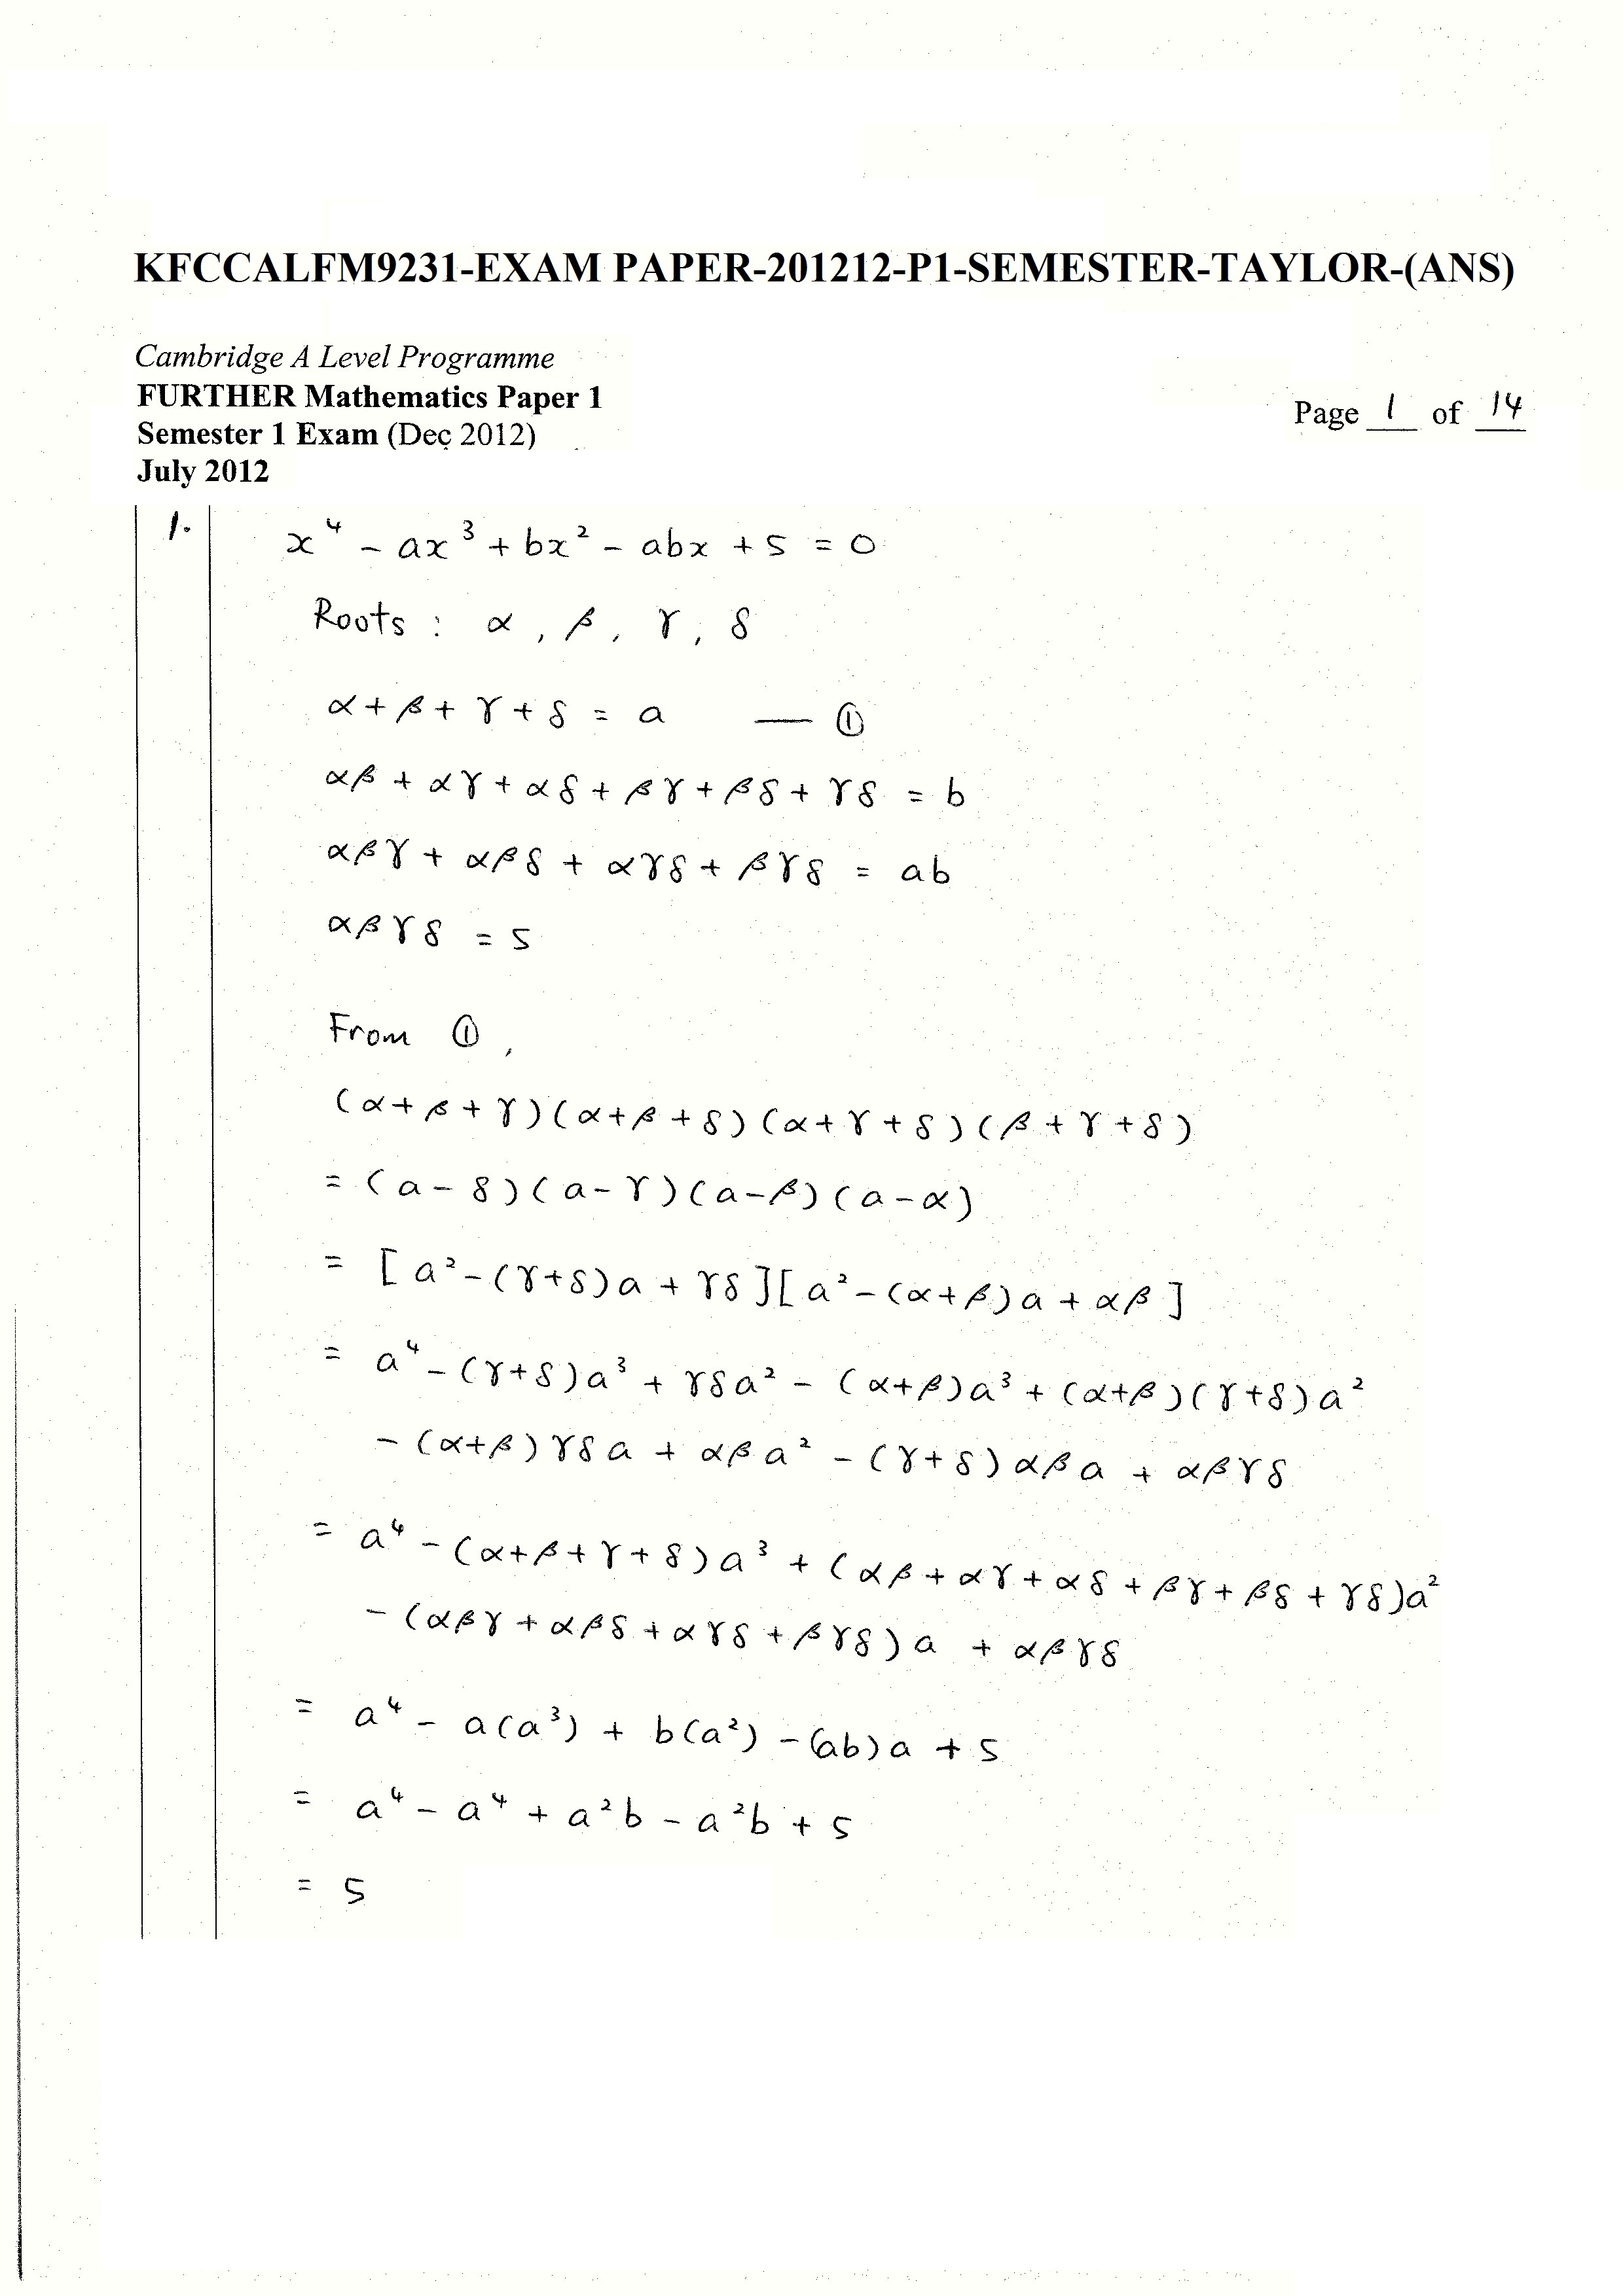 KFCCALFM9231-EXAM PAPER-201212-P1-SEMESTER-TAYLOR-(ANS)
Cambridge A Level Programme
FURTHER Mathematics Paper 1
Semester 1 Exam (Dec 2012)
Page 1 of 14
July 2012
1. x⁴ - ax³ + bx² - abx + 5 = 0
Roots : α, β, γ, δ
α + β + γ + δ = a — ①
αβ + αγ + αδ + βγ + βδ + γδ = b
αβγ + αβδ + αγδ + βγδ = ab
αβγδ = 5
From ①,
(α+β+γ)(α+β+δ)(α+γ+δ)(β+γ+δ)
= (a-δ)(a-γ)(a-β)(a-α)
= [a²-(γ+δ)a + γδ][a²-(α+β)a + αβ]
= a⁴-(γ+δ)a³ + γδa² - (α+β)a³ + (α+β)(γ+δ)a²
-(α+β)γδa + αβa² - (γ+δ)αβa + αβγδ
= a⁴ - (α+β+γ+δ)a³ + (αβ+αγ+αδ+βγ+βδ+γδ)a²
-(αβγ+αβδ+αγδ+βγδ)a + αβγδ
= a⁴ - a(a³) + b(a²) - (ab)a + 5
= a⁴ - a⁴ + a²b - a²b + 5
= 5